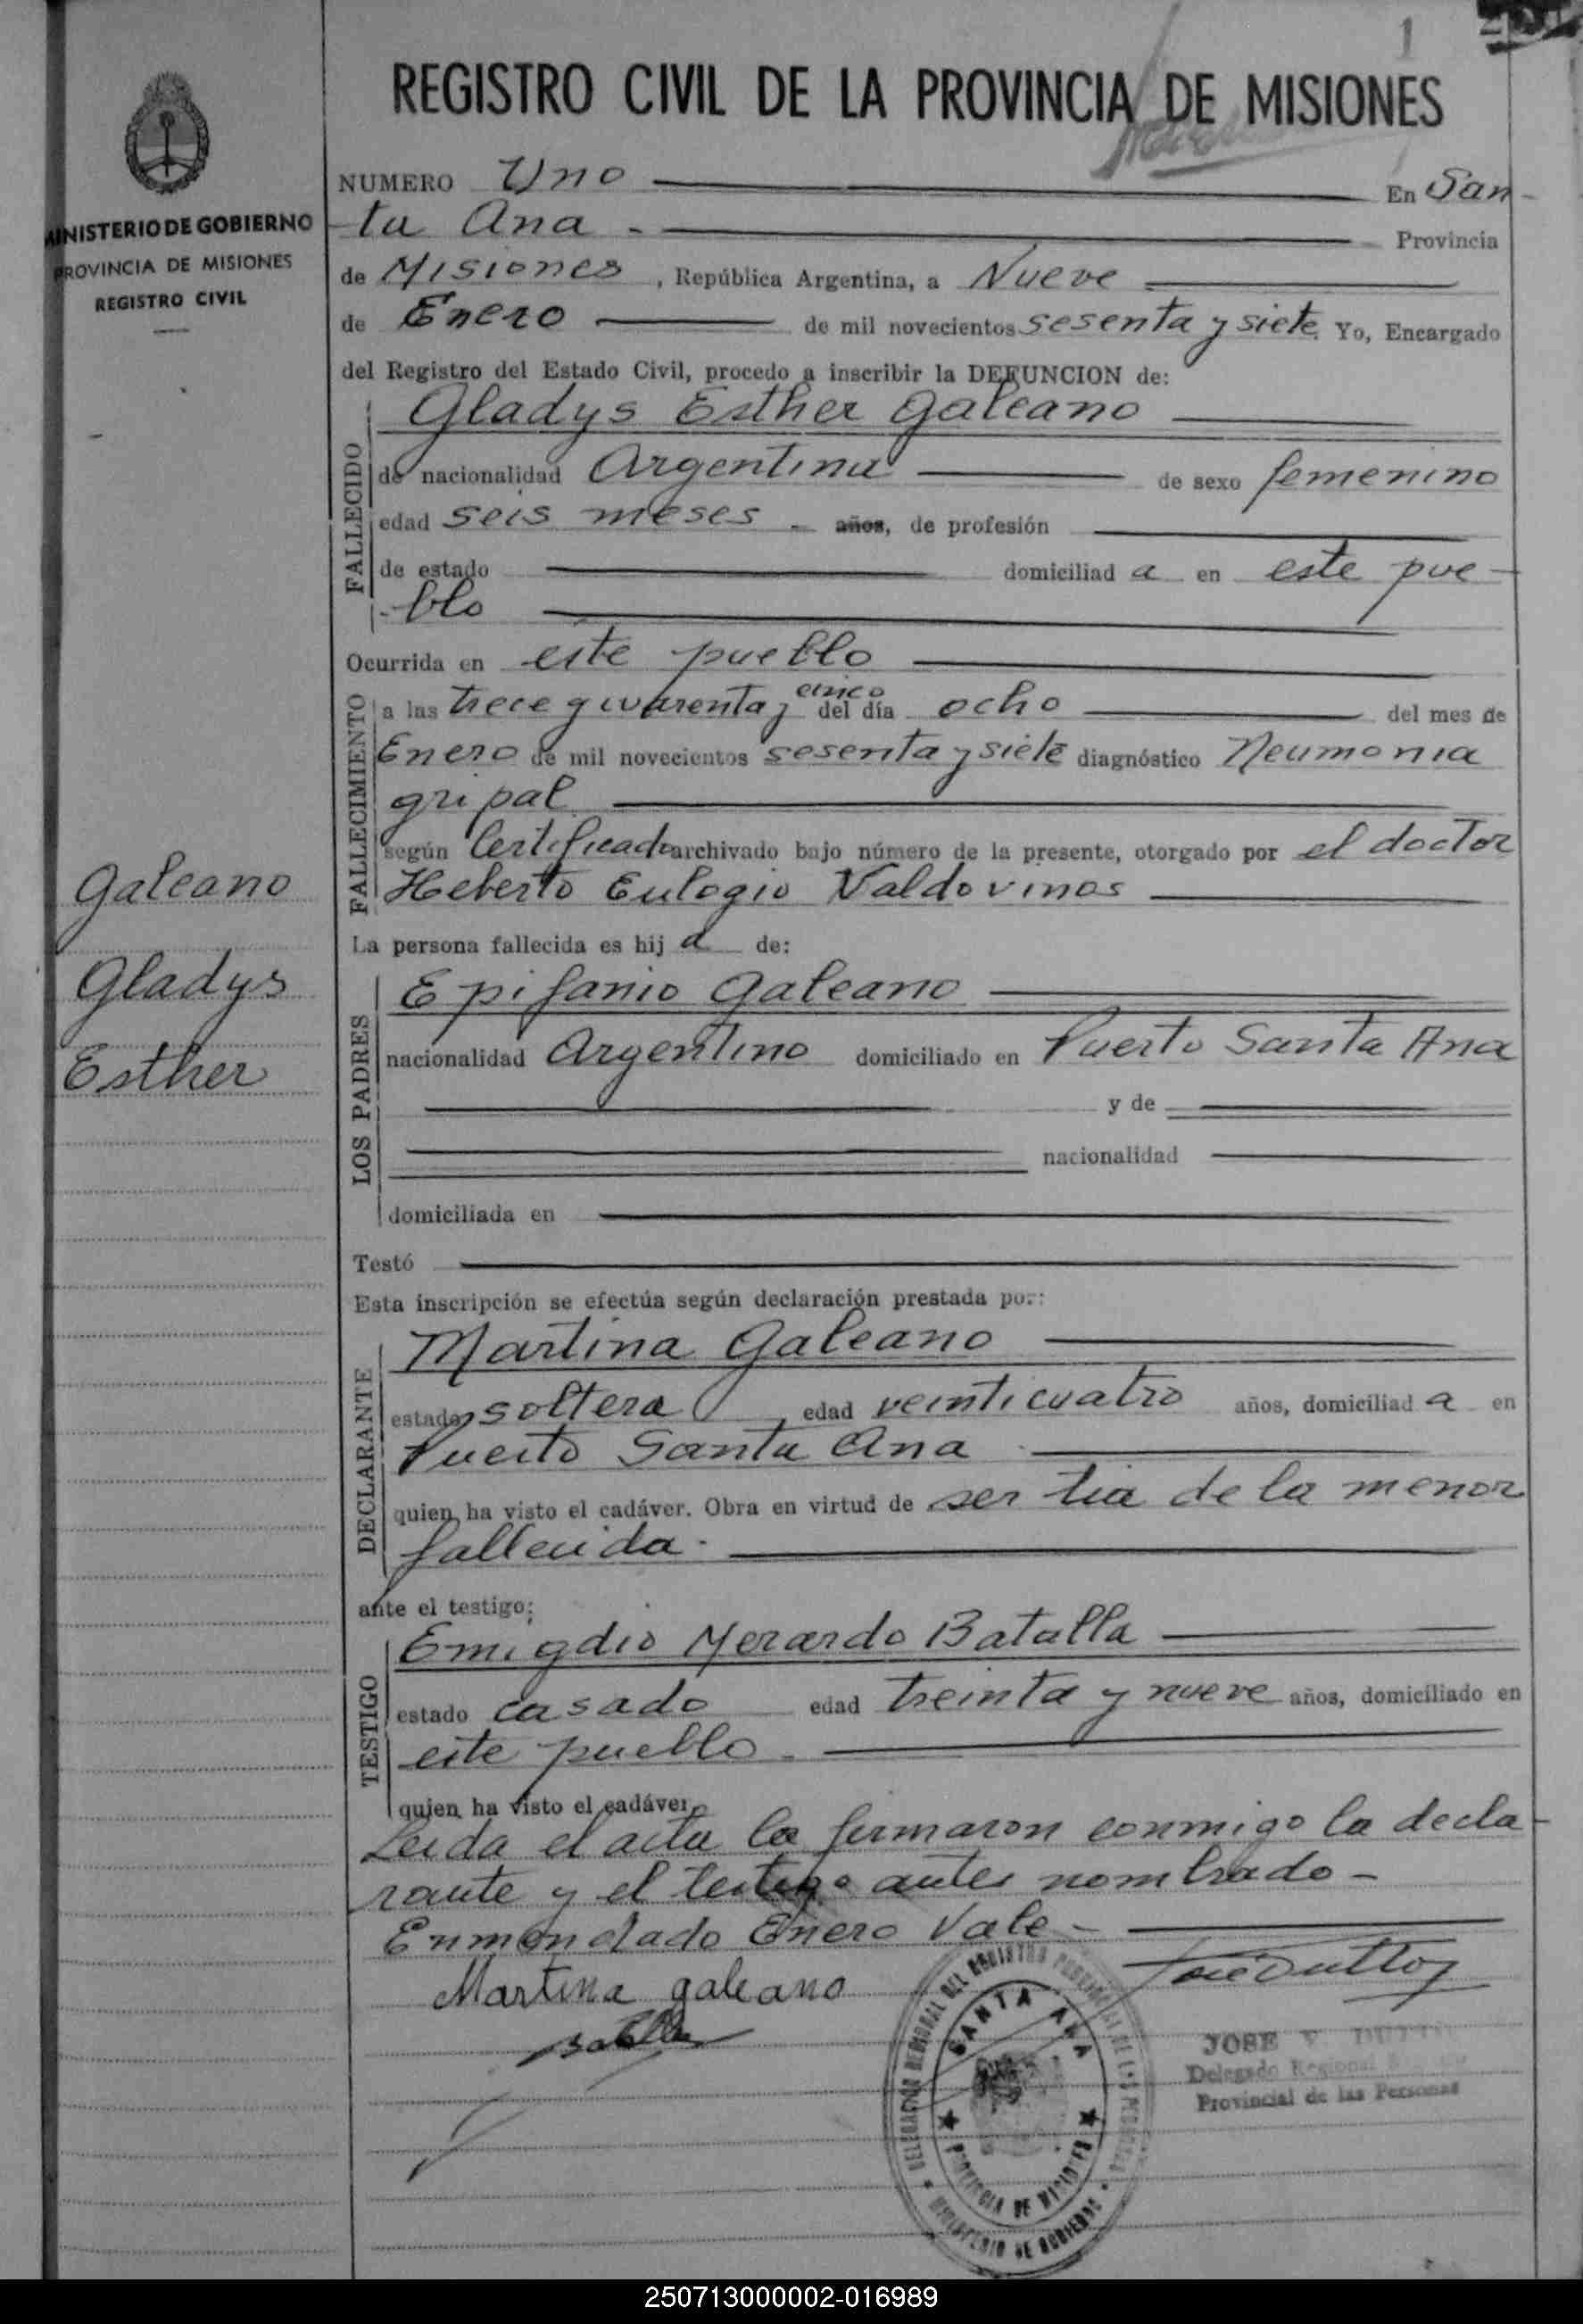 1
REGISTRO CIVIL DE LA PROVINCIA DE MISIONES
MINISTERIO DE GOBIERNO
PROVINCIA DE MISIONES
REGISTRO CIVIL
NUMERO Uno En San-
ta Ana - Provincia
de Misiones, República Argentina, a Nueve
de Enero de mil novecientos sesenta y siete. Yo, Encargado
del Registro del Estado Civil, procedo a inscribir la DEFUNCION de:
FALLECIDO
Gladys Esther Galeano
de nacionalidad Argentina de sexo femenino
edad seis meses - años, de profesión
de estado domiciliad a en este pue-
blo
Ocurrida en este pueblo
FALLECIMIENTO
a las trece y cuarenta y cinco del día ocho del mes de
Enero de mil novecientos sesenta y siete diagnóstico Neumonia
gripal
según Certificado archivado bajo número de la presente, otorgado por el doctor
Heberto Eulogio Valdovinos
Galeano
Gladys
Esther
La persona fallecida es hij a de:
LOS PADRES
Epifanio Galeano
nacionalidad Argentino domiciliado en Puerto Santa Ana
y de
nacionalidad
domiciliada en
Testó
Esta inscripción se efectúa según declaración prestada por:
DECLARANTE
Martina Galeano
estado soltera, edad veinticuatro años, domiciliad a en
Puerto Santa Ana
quien ha visto el cadáver. Obra en virtud de ser tia de la menor
fallecida.
ante el testigo:
TESTIGO
Emigdio Merardo Batalla
estado casado edad treinta y nueve años, domiciliado en
este pueblo -
quien ha visto el cadáver
Leida el acta la firmaron conmigo la decla-
rante y el testigo antes nombrado -
Enmendado Enero Vale -
Martina galeano
JOSE V.
Delegado Regional
Provincial de las Personas
SANTA ANA
PROVINCIA DE MISIONES
MINISTERIO DE GOBIERNO
250713000002-016989